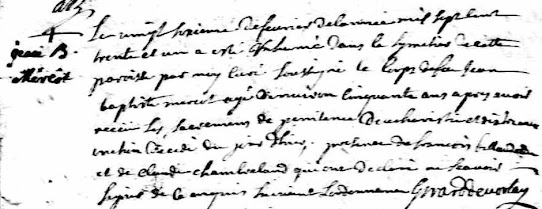 Jean B.
Mercôt
Le vingt sixieme de fevrier de lannee mil sept cent
trente et un a esté Inhumé dans le cymetiere de cette
paroisse par moy Curé soussigné le corps de feu Jean
baptiste mercot agé denviron Cinquante ans apres avoir
receu les sacremens de penitence deucharistie et dextreme
onction decedé du jour dhier, presence de francois
et de Claude Chambreland qui ont declaré ne scavoir
signer de ce enquis suivant Lordonnance Girard